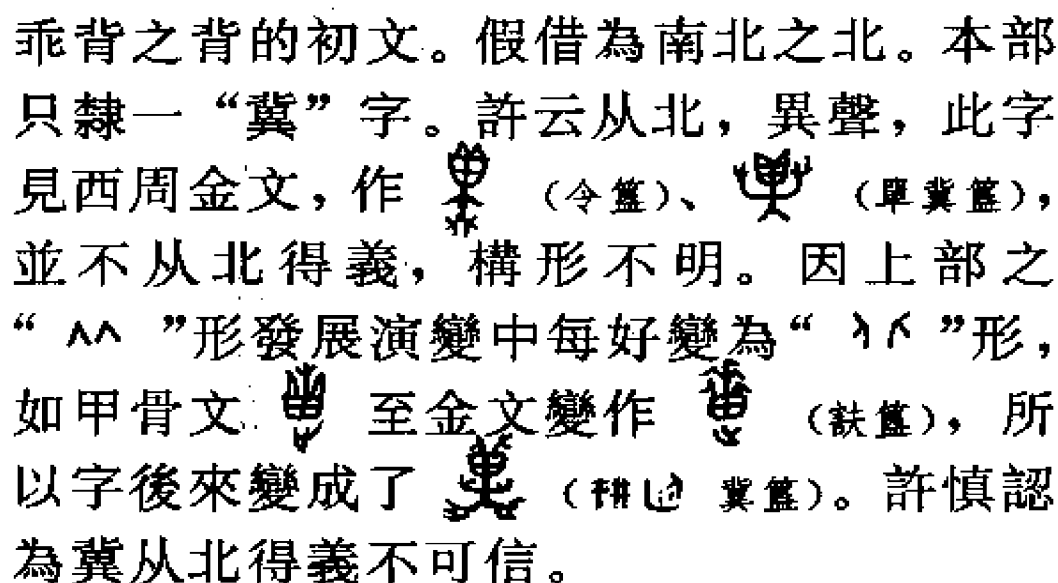 乖背之背的初文。假借為南北之北。本部
只隸一“冀”字。許云从北，異聲，此字
見西周金文，作（令簋）、（冀簋），
並不从北得義，構形不明。因上部之
“ ”形發展演變中每好變為“ ”形，
如甲骨文 至金文變作（簋），所
以字後來變成了（冀簋）。許慎認
為冀从北得義不可信。